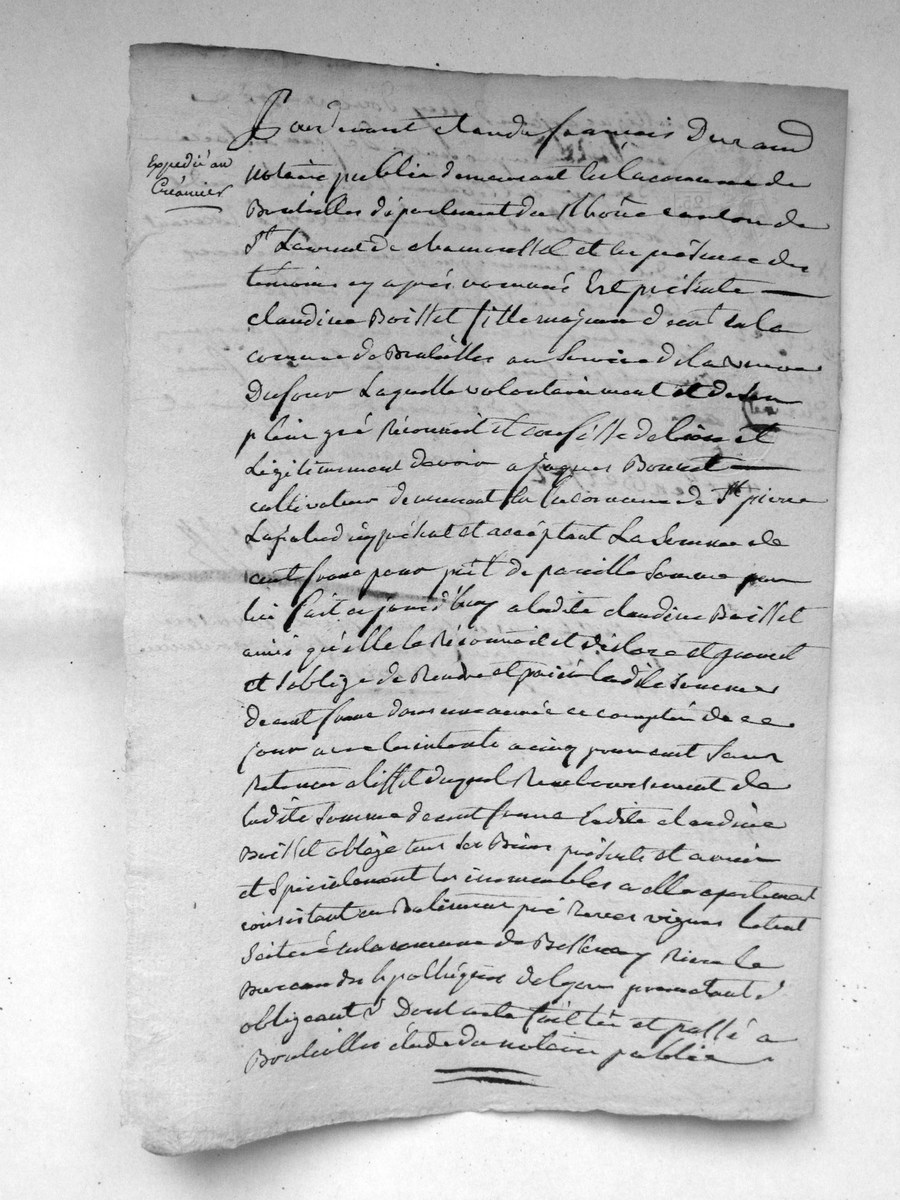 Pardevant claude francois Durand
Expedié au
Créancier
notaire public demeurant en la commune de
Brulliolles département du Rhône canton de
St Laurent de chamousset et en présence des
temoins cy après nommés Est présente
claudine Boisset fille majeure demt en la
commune de Brulliolles au service de la veuve
Dufour Laquelle volontairement et de son
plein gré Reconnait et confesse de bien et
Légitimement devoir a jaques Bonnet
cultivateur demeurant en la commune de St pierre
Lapalud cy présent et acceptant La Somme de
cent francs pour prêt de pareille Somme par
lui fait ce jourd'huy a ladite claudine Boisset
ainsi qu'elle le Reconnait et déclare et promet
et s'oblige de Rendre et paier ladite Somme
de cent francs dans une année a compter de ce
jour avec les intérêts a cinq pour cent Sans
Retenue a l'effet duquel Remboursement de
ladite Somme de cent francs Ladite claudine
Boisset oblige tous Ses Biens présents et avenir
et Spécialement les immeubles a elle apartenant
consistant en Batiment pré terres vignes le tout
Situé en la commune de Bessenay Riere le
Bureau des hypothèques de lyon promettant
obligeant Dont acte fait lu et passé a
Brulliolles étude du notaire public